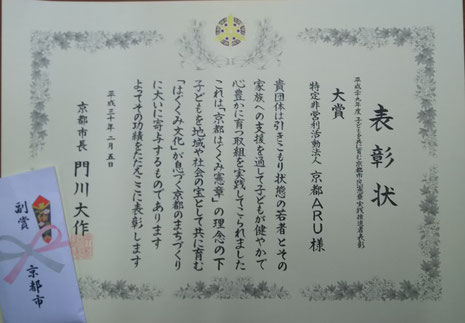 表彰状
平成二十九年度 子どもを共に育む京都市民憲章実践推進者表彰
大賞
特定非営利活動法人 京都ARU 様
貴団体は引きこもり状態の若者とその
家族への支援を通して子どもが健やかで
心豊かに育つ取組を実践してこられました
これは「京都はぐくみ憲章」の理念の下
子どもを地域や社会の宝として共に育む
「はぐくみ文化」が息づく京都のまちづくり
に大いに寄与するものであります
よってその功績をたたえここに表彰します
平成三十年二月五日
京都市長 門川大作
副賞
京都市